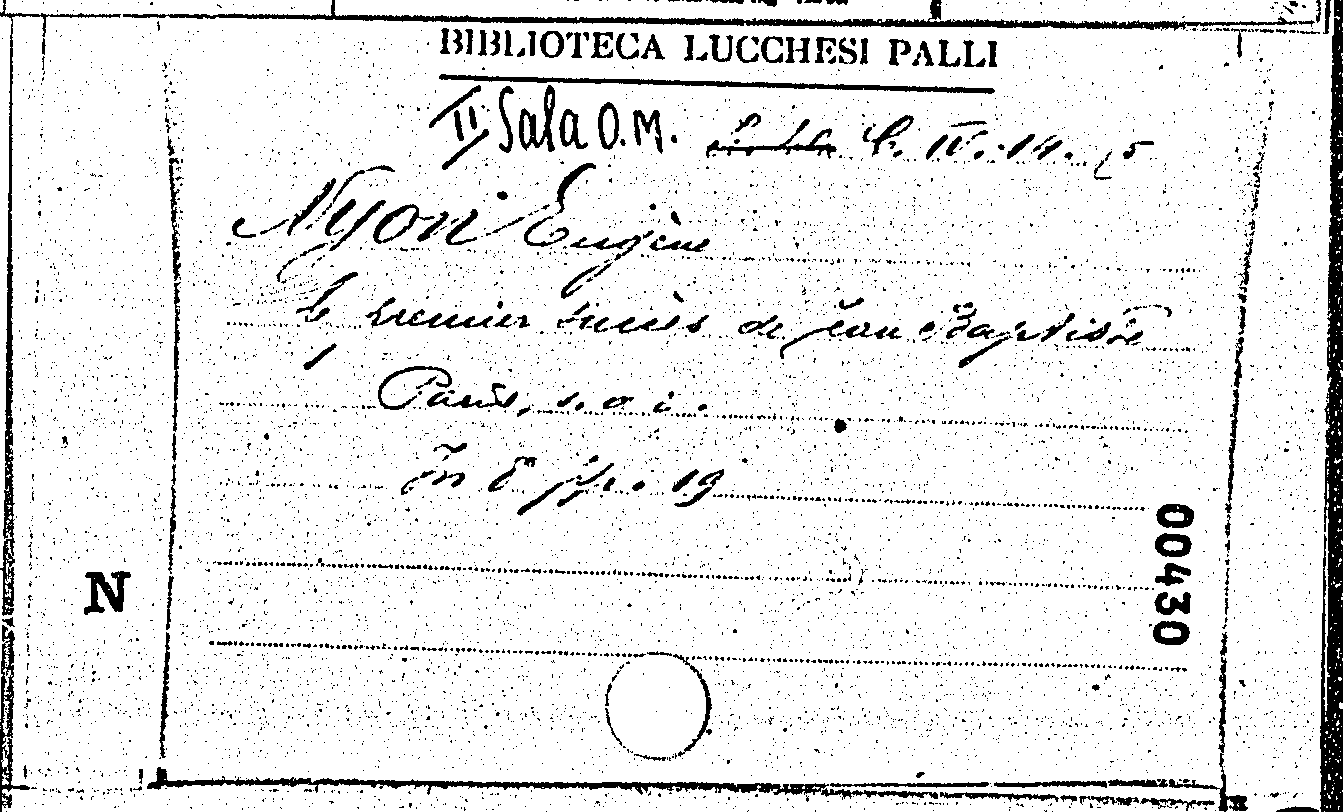 BIBLIOTECA LUCCHESI PALLI
II Sala O.M. C. IV. 14. (5
Nyon Eugène
Le premier succès de Jean Baptiste
Paris, s. a. i.
In 8° pp. 19
00430
N